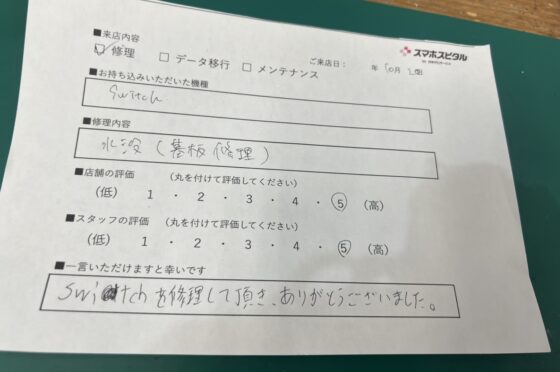 ■来店内容
スマホスピタル
☑ 修理 □ データ移行 □ メンテナンス
ご来店日： 年 10月 日
■お持ち込みいただいた機種
Switch
■修理内容
水没(基板修理)
■店舗の評価 (丸を付けて評価してください)
(低) 1 ・ 2 ・ 3 ・ 4 ・ 5 (高)
■スタッフの評価 (丸を付けて評価してください)
(低) 1 ・ 2 ・ 3 ・ 4 ・ 5 (高)
■一言いただけますと幸いです
Switchを修理して頂き、ありがとうございました。